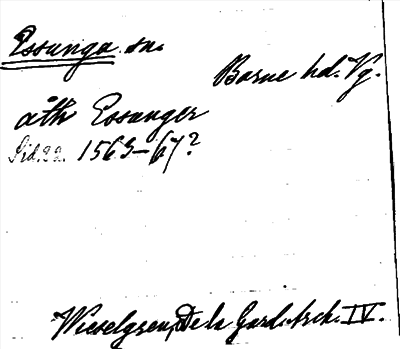 Essunga sn.
Barne hd. Vg.
åth Essunger
Sid. 22. 1565-67?
Wieselgren, De la Gard. Arch. IV.